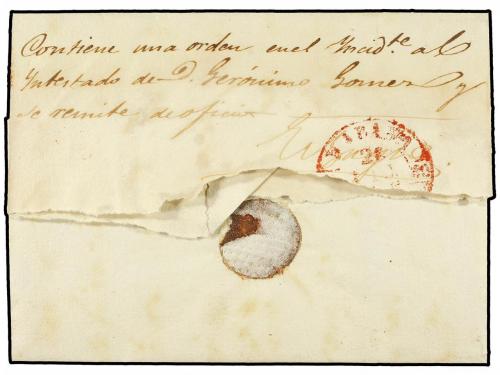 Contiene una orden en el Incid.te al
Intestado de D. Gerónimo Gomez y
se remite de oficio